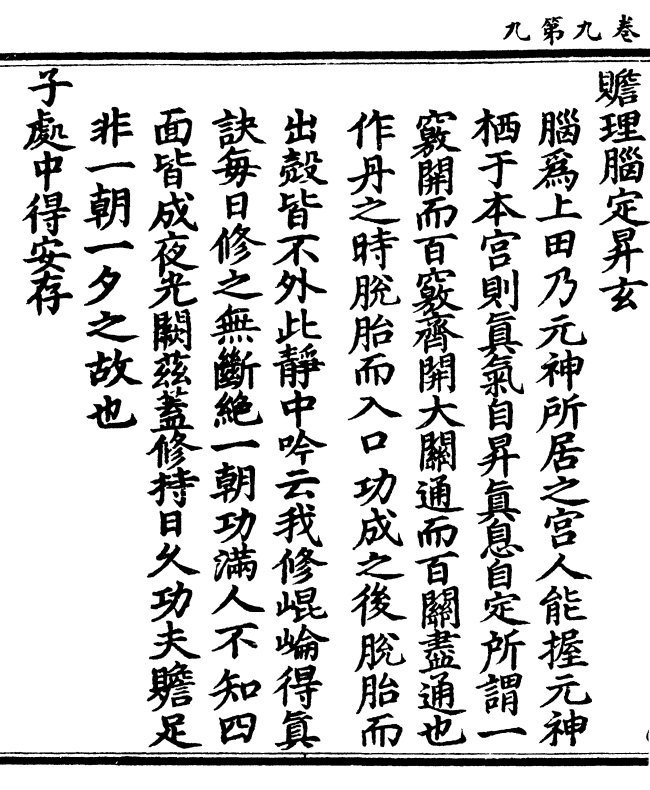 卷九第九
贍理腦定昇玄
腦爲上田乃元神所居之宮人能握元神
栖于本宮則眞氣自昇眞息自定所謂一
竅開而百竅齊開大關通而百關盡通也
作丹之時脫胎而入口功成之後脫胎而
出殼皆不外此靜中吟云我修崐崘得眞
訣每日修之無斷絶一朝功滿人不知四
面皆成夜光闕茲蓋修持日久功夫贍足
非一朝一夕之故也
子處中得安存